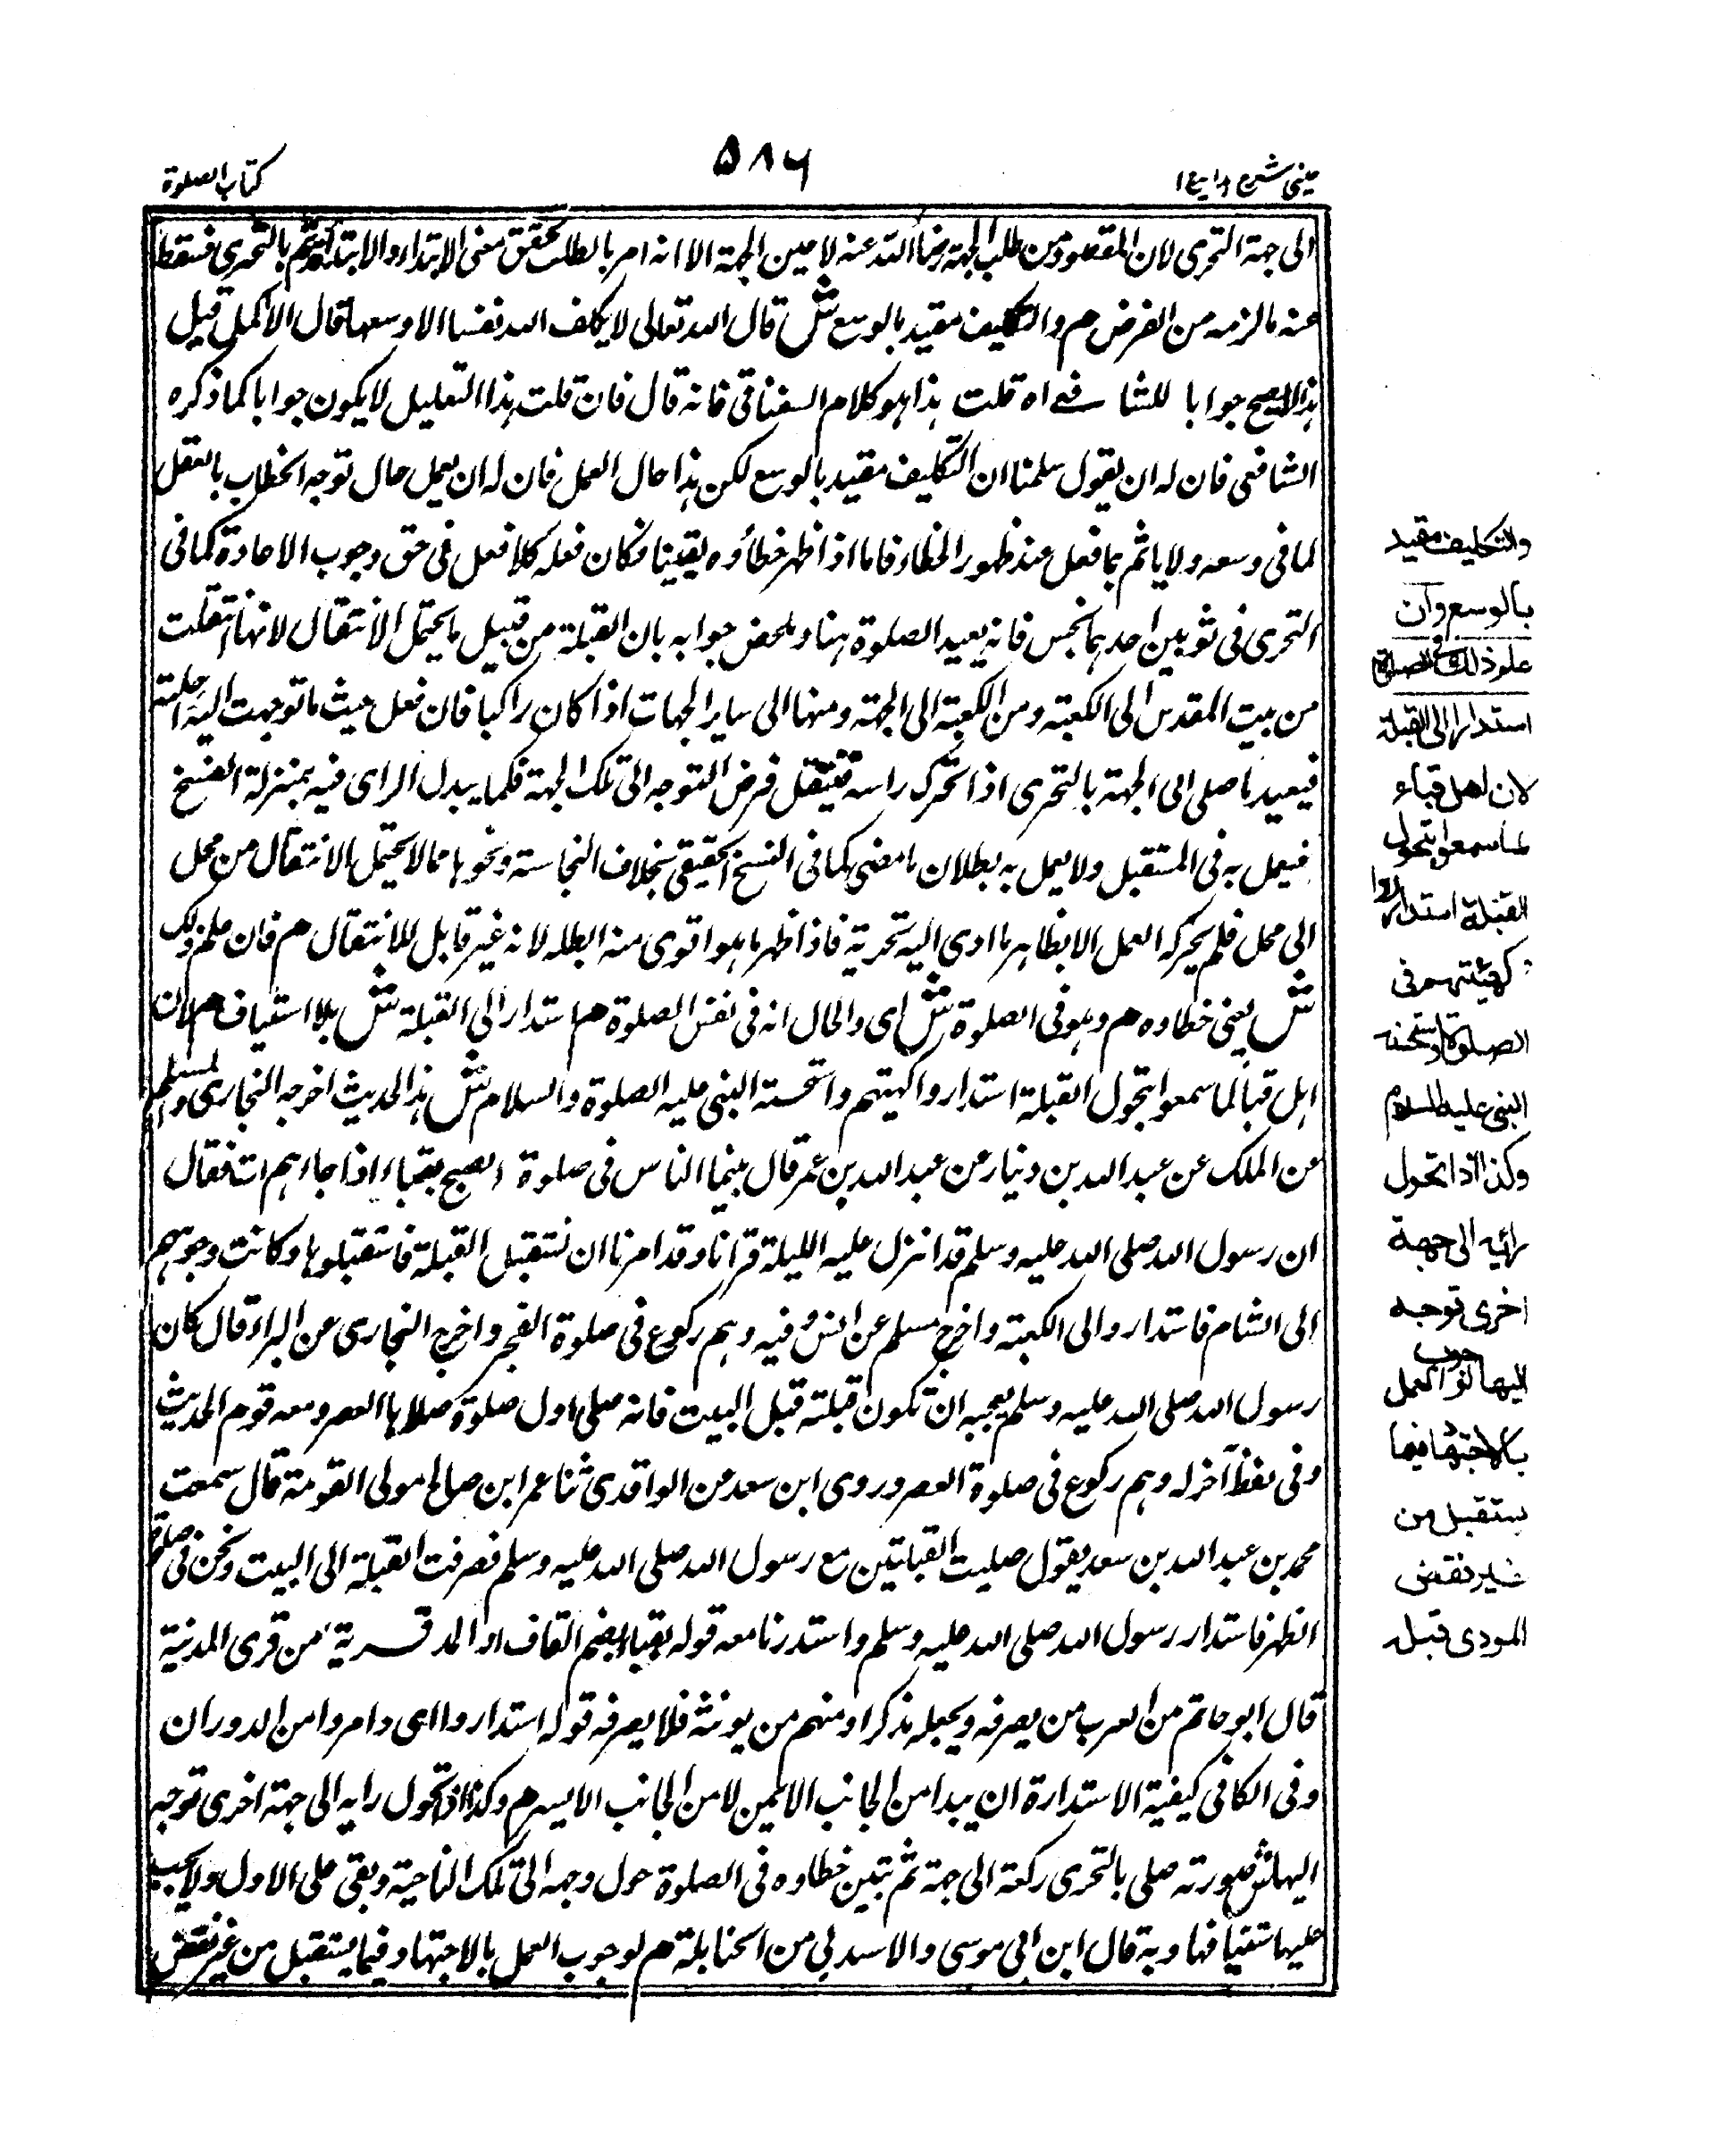 عینی شرح ہدایہ ج ۱
۵۸۶
کتاب الصلوة
الی جهة التحری لان المقصود من طلب الجهة رضا الله عنه لا عین الجهة الا انه امر بالطلب لتحقق معنی الابتلاء والابتلاء تم بالتحری فسقط
عنه ما لزمه من الفرض م والتکلیف مقید بالوسع ش قال الله تعالی لا یکلف الله نفسا الا وسعها قال الاکمل قیل
هذا لا یصح جوابا للشافعی اه قلت هذا هو کلام السغناقی فانه قال فان قلت هذا التعلیل لا یکون جوابا کما ذکره
الشافعی فان له ان یقول سلمنا ان التکلیف مقید بالوسع لکن هذا حال العمل فان له ان یعمل حال توجه الخطاب بالعقل
لما فی وسعه ولا یاثم بما فعل عند ظهور الخطاء فاما اذا ظهر خطأوه یقینا فکان فعله کلا فعل فی حق وجوب الاعادة کما فی
التحری فی ثوبین احدهما نجس فانه یعید الصلوة هنا وملخص جوابه بان القبلة من قبیل ما یحتمل الانتقال لانها انتقلت
من بیت المقدس الی الکعبة ومن الکعبة الی الجهة ومنها الی سایر الجهات اذا کان راکبا فان فعل حیث ما توجهت الیه راحلته
فیعید ما صلی الی الجهة بالتحری اذا تحرک راسه فینتقل فرض التوجه الی تلک الجهة فکما یبدل الرای فیه بمنزلة الفسخ
فیعمل به فی المستقبل ولا یعمل به بطلان ما مضی کما فی النسخ الحقیقی بخلاف النجاسة ونحوها مما لا یحتمل الانتقال من محل
الی محل فلم یحرکه العمل الا بظاهر ما ادی الیه تحریه فاذا ظهر ما هو اقوی منه ابطله لانه غیر قابل للانتقال م فان علم ذلک
ش یعنی خطاوه م وهو فی الصلوة ش ای والحال انه فی نفس الصلوة م استدار الی القبلة ش بلا استیناف م لان
اهل قبا لما سمعوا بتحول القبلة استداروا کهیتهم واستحسنه النبی علیه الصلوة والسلام ش هذا الحدیث اخرجه البخاری ومسلم
عن الملک عن عبد الله بن دینار عن عبد الله بن عمر قال بینما الناس فی صلوة الصبح بقباء اذا جاءهم ات فقال
ان رسول الله صلی الله علیه وسلم قد انزل علیه اللیلة قرانا وقد امرنا ان نستقبل القبلة فاستقبلوها وکانت وجوههم
الی الشام فاستداروا الی الکعبة واخرج مسلم عن انس وفیه وهم رکوع فی صلوة الفجر واخرج البخاری عن البراء قال کان
رسول الله صلی الله علیه وسلم یعجبه ان تکون قبلته قبل البیت فانه صلی اول صلوة صلاها العصر ومعه قوم الحدیث
وفی لفظ آخر له وهم رکوع فی صلوة العصر وروی ابن سعد عن الواقدی ثنا عمر ابن صالح مولی القومة قال سمعت
محمد بن عبد الله بن سعد یقول صلیت القبلتین مع رسول الله صلی الله علیه وسلم فصرفت القبلة الی البیت ونحن فی صلوة
الظهر فاستدار رسول الله صلی الله علیه وسلم واستدرنا معه قوله بقباء بضم القاف او المد قریة من قری المدینة
قال ابو حاتم من العرب من یصرفه ویجعله مذکرا ومنهم من یونثه فلا یصرفه قوله استداروا ای دامروا من الدوران
وفی الکافی کیفیة الاستدارة ان یبدا من الجانب الایمن لا من الجانب الایسر م وکذا اذا تحول رایه الی جهة اخری توجه
الیها ش صورته صلی بالتحری رکعة الی جهة ثم تبین خطاوه فی الصلوة حول وجهه الی تلک الناحیة وبقی علی الاول ولا یجب
علیها ستینافها وبه قال ابن ابی موسی والاسدلی من الحنابلة م لوجوب العمل بالاجتهاد فیما یستقبل من غیر نقض
والتکلیف مقید
بالوسع وان
علم ذلک فی الصلوة
استدار الی القبلة
لان اهل قباء
لما سمعوا بتحول
القبلة استداروا
کهیئتهم فی
الصلوة واستحسنه
النبی علیه السلام
وکذا اذا تحول
رائیه الی جهة
اخری توجه
الیها لوجوب العمل
بالاجتهاد فیما
یستقبل من
غیر نقض
المودی قبله